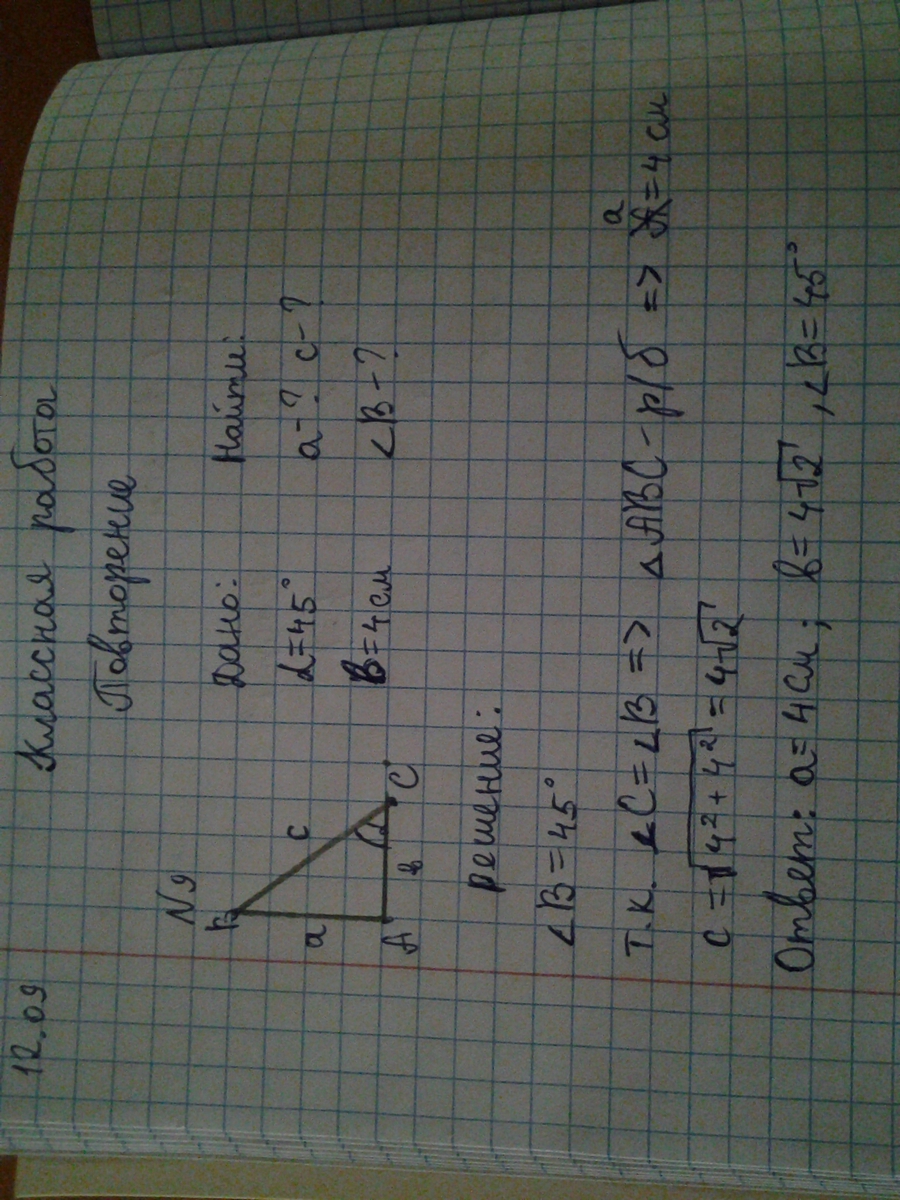 12.09
Классная работа
Повторение
N9
B
a
c
A
в
α
C
Дано: Найти:
α=45° a-? c-?
в=4см ∠B-?
решение:
∠B=45°
т.к. ∠C=∠B => △ABC-р/б => a=4см
c=√4²+4²=4√2
Ответ: a=4см; в=4√2, ∠B=45°